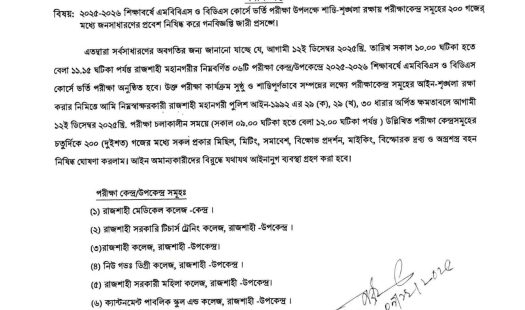 বিষয়: ২০২৫-২০২৬ শিক্ষাবর্ষে এমবিবিএস ও বিডিএস কোর্সে ভর্তি পরীক্ষা উপলক্ষে শান্তি-শৃঙ্খলা রক্ষায় পরীক্ষাকেন্দ্র সমূহের ২০০ গজের
মধ্যে জনসাধারণের প্রবেশ নিষিদ্ধ করে গনবিজ্ঞপ্তি জারী প্রসঙ্গে।
এতদ্বারা সর্বসাধারণের অবগতির জন্য জানানো যাচ্ছে যে, আগামী ১২ই ডিসেম্বর ২০২৫খ্রি. তারিখ সকাল ১০.০০ ঘটিকা হতে
বেলা ১১.১৫ ঘটিকা পর্যন্ত রাজশাহী মহানগরীর নিম্নবর্ণিত ০৬টি পরীক্ষা কেন্দ্র/উপকেন্দ্রে ২০২৫-২০২৬ শিক্ষাবর্ষে এমবিবিএস ও বিডিএস
কোর্সে ভর্তি পরীক্ষা অনুষ্ঠিত হবে। উক্ত পরীক্ষা কার্যক্রম সুষ্ঠু ও শান্তিপূর্ণভাবে সম্পন্নের লক্ষ্যে পরীক্ষাকেন্দ্র সমূহের আইন-শৃঙ্খলা রক্ষা
করার নিমিত্তে আমি নিম্নস্বাক্ষরকারী রাজশাহী মহানগরী পুলিশ আইন-১৯৯২ এর ২৯ (ক), ২৯ (খ), ৩০ ধারার অর্পিত ক্ষমতাবলে আগামী
১২ই ডিসেম্বর ২০২৫খ্রি. পরীক্ষা চলাকালীন সময়ে (সকাল ০৯.০০ ঘটিকা হতে বেলা ১২.০০ ঘটিকা পর্যন্ত ) উল্লিখিত পরীক্ষা কেন্দ্রসমূহের
চতুর্দিকে ২০০ (দুইশত) গজের মধ্যে সকল প্রকার মিছিল, মিটিং, সমাবেশ, বিক্ষোভ প্রদর্শন, মাইকিং, বিস্ফোরক দ্রব্য ও অস্ত্রশস্ত্র বহন
নিষিদ্ধ ঘোষণা করলাম। আইন অমান্যকারীদের বিরুদ্ধে যথাযথ আইনানুগ ব্যবস্থা গ্রহণ করা হবে।
পরীক্ষা কেন্দ্র/উপকেন্দ্র সমূহঃ
(১) রাজশাহী মেডিকেল কলেজ -কেন্দ্র।
(২) রাজশাহী সরকারি টিচার্স ট্রেনিং কলেজ, রাজশাহী -উপকেন্দ্র।
(৩)রাজশাহী কলেজ, রাজশাহী -উপকেন্দ্র।
(৪) নিউ গভঃ ডিগ্রী কলেজ, রাজশাহী -উপকেন্দ্র।
(৫) রাজশাহী সরকারী মহিলা কলেজ, রাজশাহী -উপকেন্দ্র।
(৬) ক্যান্টনমেন্ট পাবলিক স্কুল এন্ড কলেজ, রাজশাহী -উপকেন্দ্র।